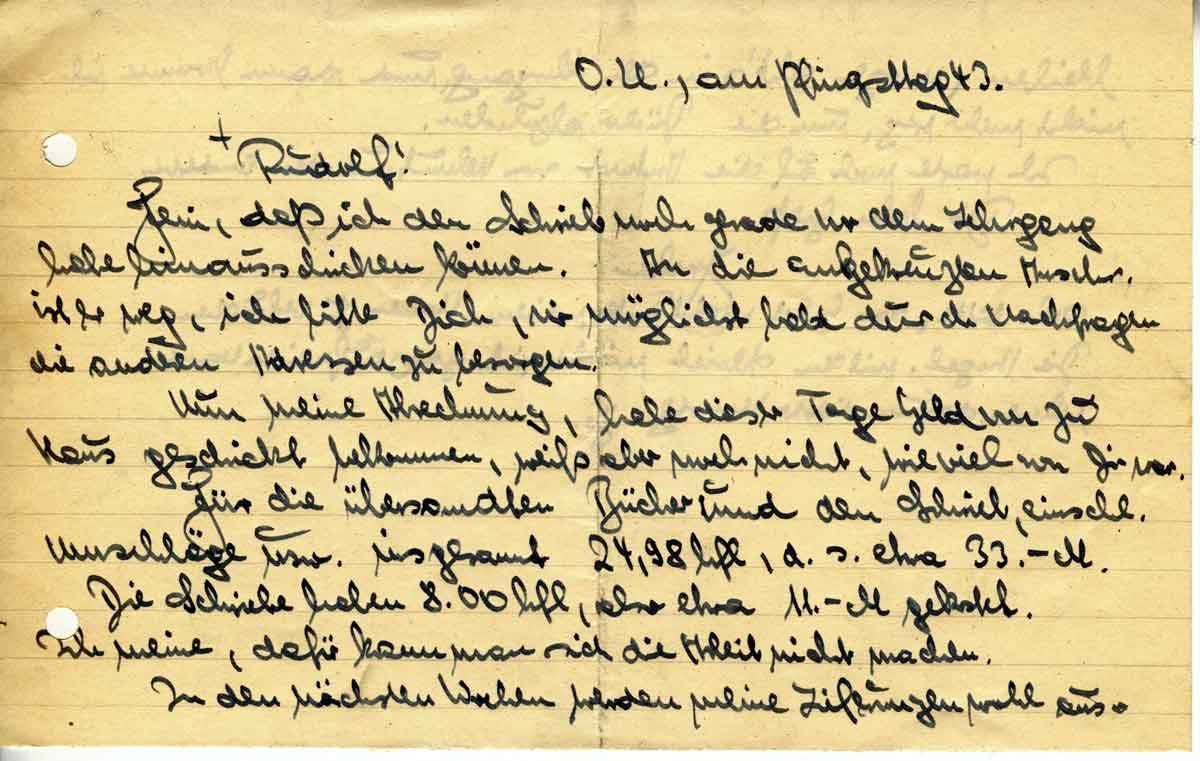 O.U., am Pfingsttag 43.
+
Rudolf!
Fein, daß ich den Schrieb noch gerade vor dem Lehrgang
habe hinausschicken können. An die angekreuzten Anschr.
ist er weg, ich bitte Dich, mir möglichst bald durch Nachfragen
die andern Adressen zu besorgen.
Nun meine Abrechnung, habe dieser Tage Geld von zu
Haus geschickt bekommen, weiß aber noch nicht, wie viel von Dir war.
Für die übersandten Bücher und den Schrieb, einschl.
Umschläge usw. insgesamt 24,98 hfl, d. s. etwa 33.-M.
Die Schriebe haben 8.00 hfl, also etwa 11.-M gekostet.
Ich meine, dafür kann man sich die Arbeit nicht machen.
In den nächsten Wochen werden meine Lieferungen wohl aus-